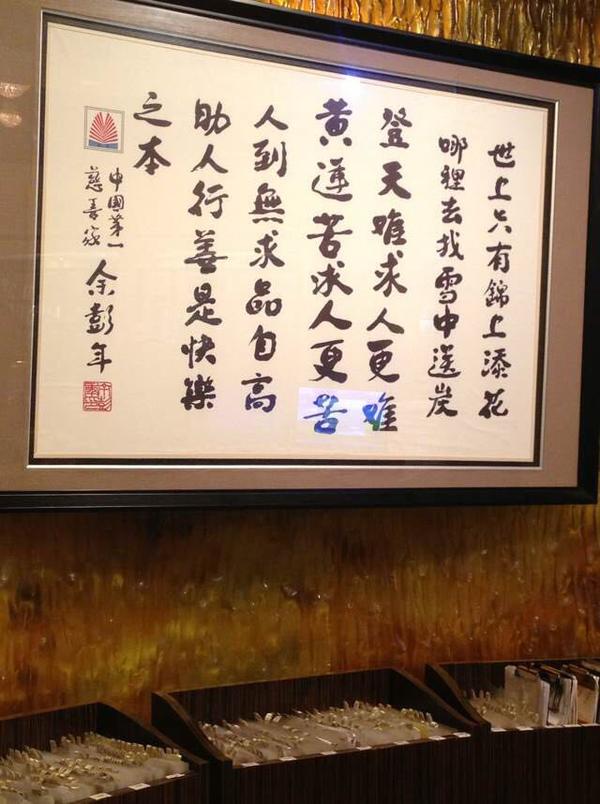 世上只有錦上添花
哪裡去找雪中送炭
登天难求人更难
黄連苦求人更苦
人到無求品自高
助人行善是快樂
之本
中国第一
慈善家
余彭年